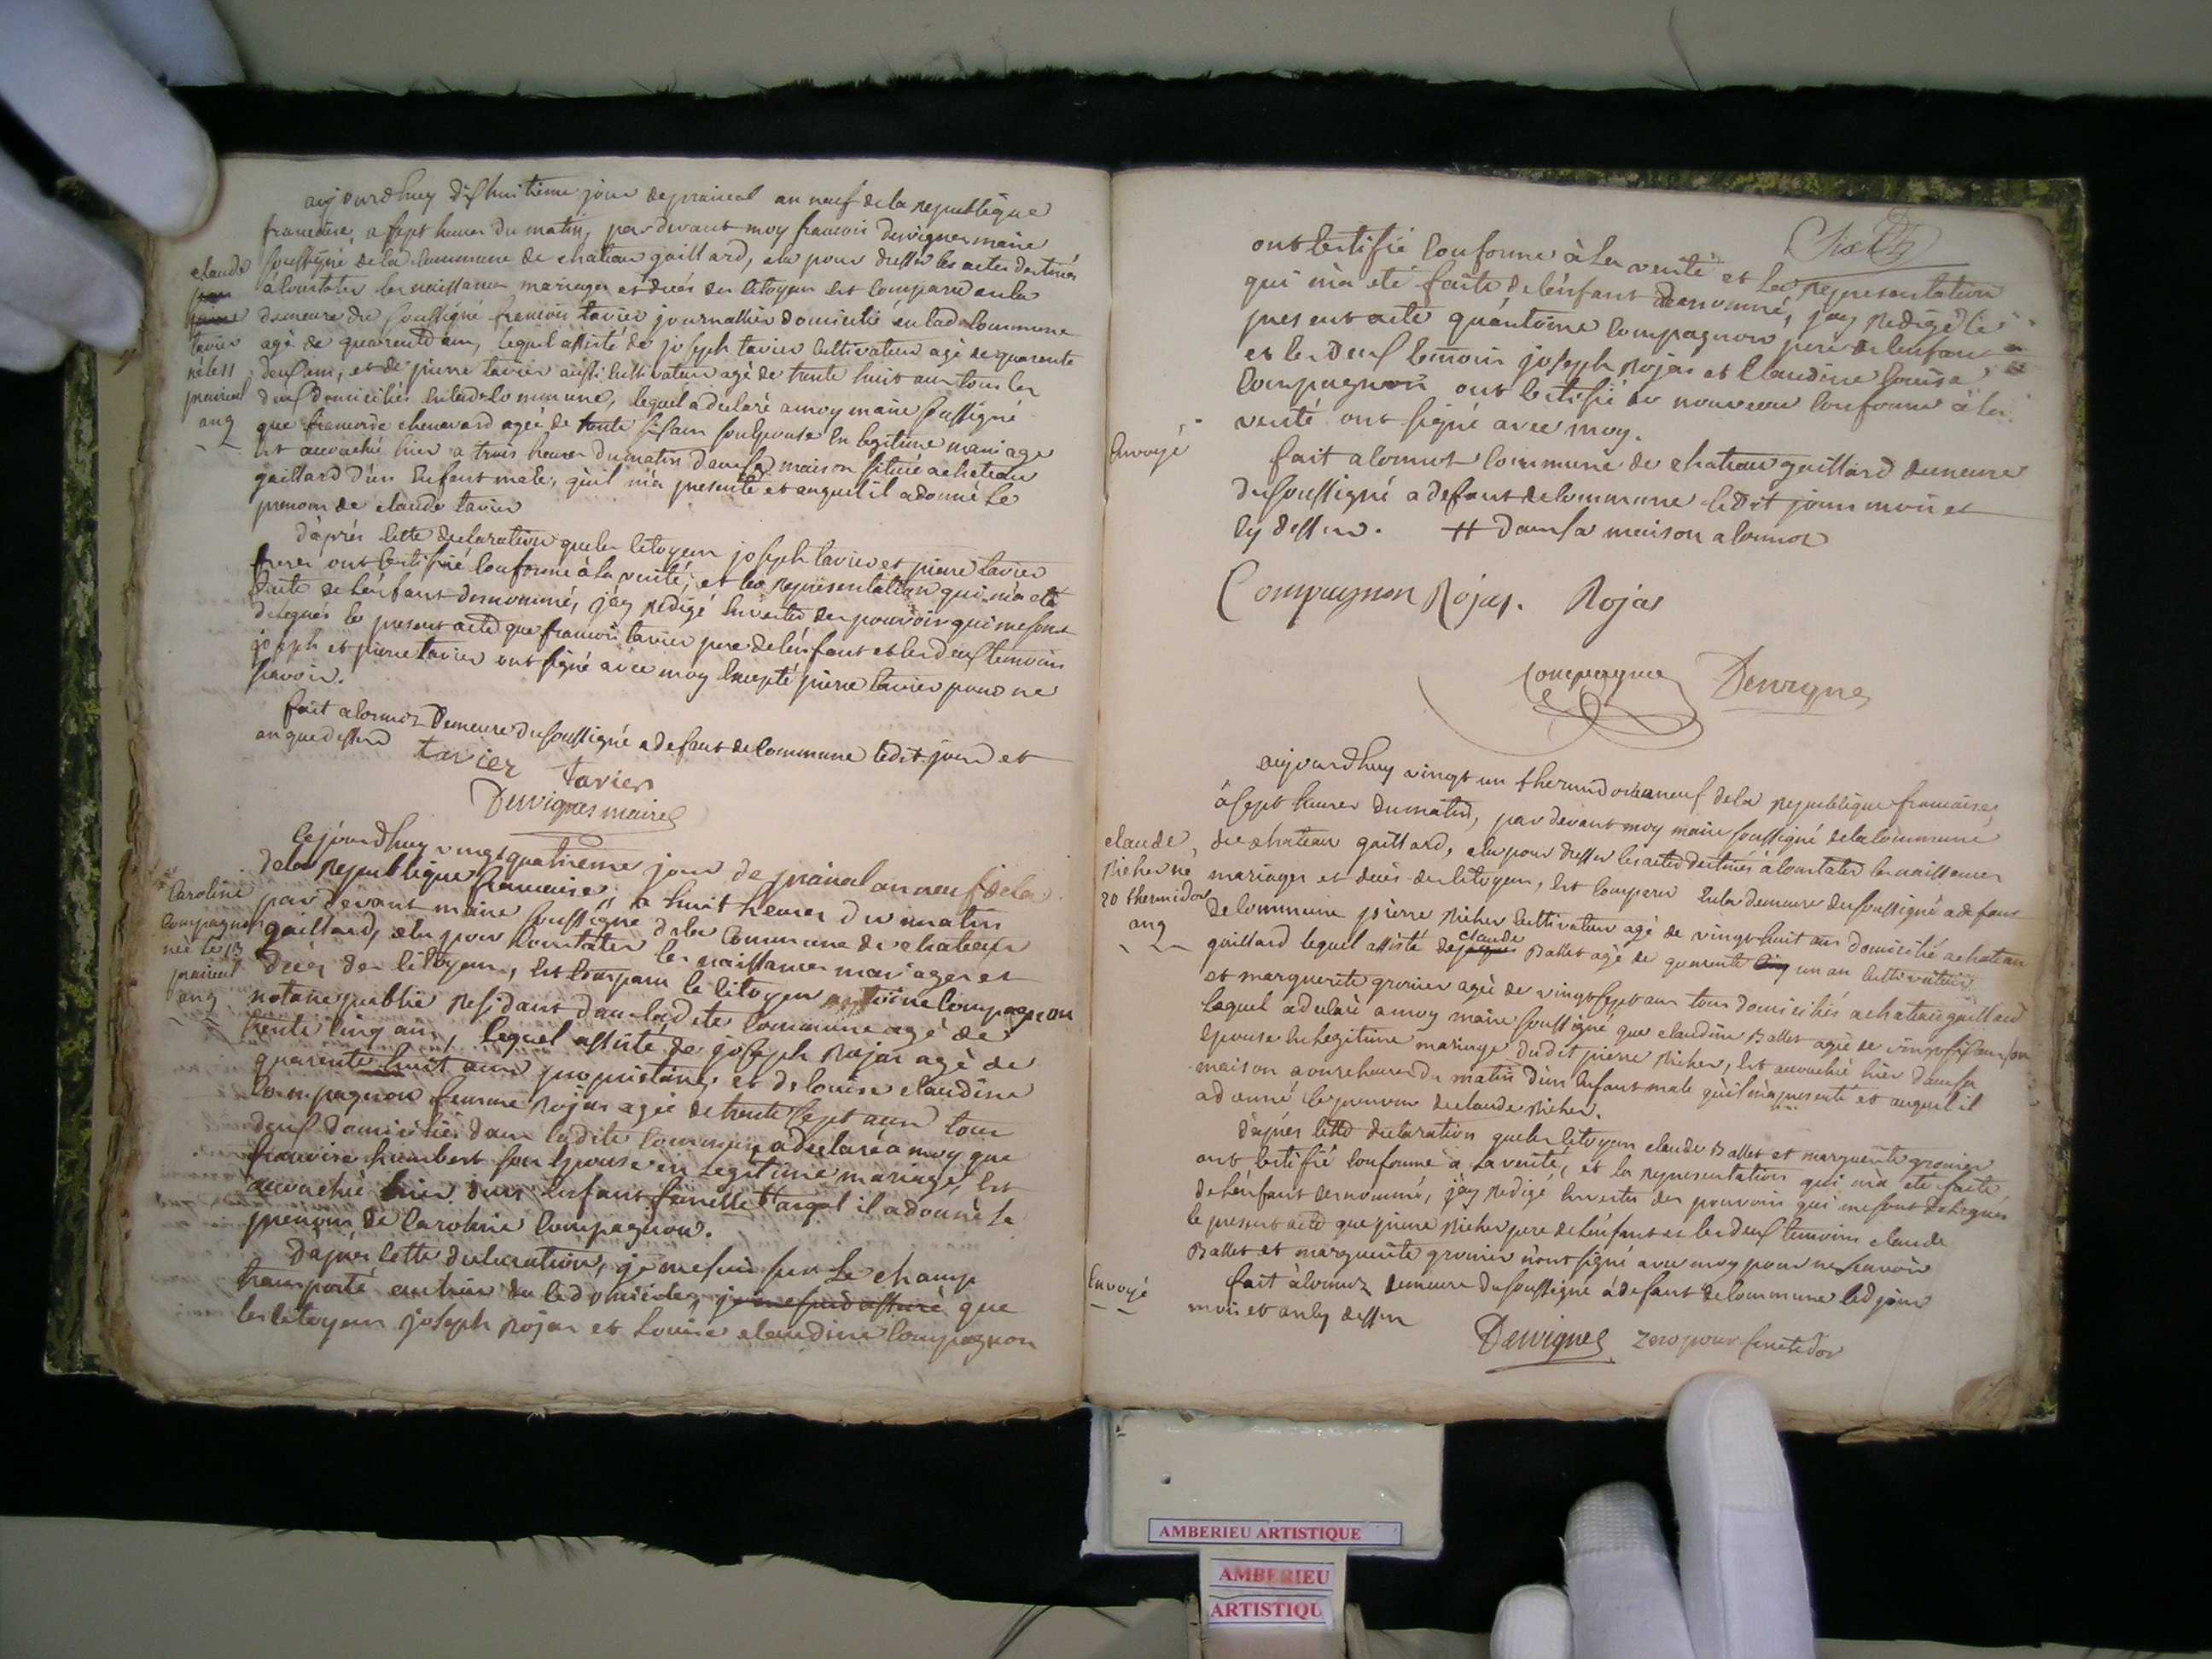 aujourdhuy dixhuitieme jour de prairial an neuf de la republique
francoise, a sept heures du matin, par devant moy francois Dervignes maire
soussigné de la commune de chateau gaillard, elu pour dresser les actes destinés
à constater les naissances mariages et décés des citoyens est comparu en la
demeure du soussigné francois tavier journallier domicilié en lad commune
agé de quarente ans, lequel assisté de joseph tavier cultivateur agé de quarente
deux ans, et de pierre tavier aussi cultivateur agé de trente huit ans tous les
deux domiciliés en lad commune, lequel a declaré a moy maire soussigné
que francoise chenavard agée de trente six ans son epouse en legitime mariage
est accouchée hier a trois heures du matin dans sa maison située a chateau
gaillard d'un enfant male, qu'il m'a presenté et auquel il a donné le
prenom de claude tavier
claude
tavier
né le 11
prairial
an 9
d'aprés cette declaration que les citoyens joseph tavier et pierre tavier
freres ont certifié conforme à la verité, et la representation qui m'a eté
faite de l'enfant denommé, j'ay redigé en vertu des pouvoirs qui me sont
delegués le present acte que francois tavier pere de l'enfant et les deux temoins
joseph et pierre tavier ont signé avec moy excepté pierre tavier pour ne
savoir.
fait a cormoz demeure du soussigné a defaut de commune ledit jour et
an que dessus
tavier tavier
Dervignes maire
Cejourdhuy vingt quatrieme jour de prairial an neuf de la
de la republique francaise, a huit heures du matin
par devant maire soussigné de la commune de chateau
gaillard, elu pour constater les naissances mariages et
décés des citoyens, est comparu le citoyen antoine compagnon
notaire public residant dans ladite commune agé de
trente cinq ans, lequel assisté de joseph Rojas agé de
quarente huit ans proprietaire, et de louise claudine
compagnon femme Rojas agée de trente sept ans tous
deux domiciliés dans ladite commune a declaré a moy que
francoise humbert son epouse en legitime mariage, est
accouchée hier d'un enfant femelle auquel il a donné le
prenom de caroline compagnon.
Caroline
Compagnon
née le 13
prairial
an 9
D'aprés cette declaration, je me suis sur le champ
transporté au lieu du domicile, je me suis assuré que
les citoyens joseph Rojas et Louise claudine compagnon
ont certifié conforme à la verité et la representation
qui m'a eté faite de l'enfant denommé, j'ay redigé le
present acte qu'antoine compagnon pere de l'enfant
et les deux temoins joseph Rojas et Claudine louise
compagnon ont certifié de nouveau conforme à la
verité ont signé avec moy.
Envoyé
fait a cormoz commune de chateau gaillard demeure
du soussigné a defaut de commune ledit jour mois et
cy dessus. # dans sa maison a cormoz
Compagnon Rojas. Rojas
compagnon Dervignes
aujourdhuy vingt un thermidor an neuf de la republique francaise,
à sept heures du matin, par devant moy maire soussigné de la commune
de chateau gaillard, elu pour dresser les actes destinés à constater les naissances
mariages et décés des citoyens, est comparu en la demeure du soussigné a defaut
de commune pierre Richer cultivateur agé de vingt huit ans domicilié a chateau
gaillard lequel assisté de claude Ballet agé de quarente un an cultivateur
et marguerite gronier agée de vingt sept ans tous domiciliés a chateau gaillard
lequel a declaré a moy maire soussigné que claudine Ballet agée de vingt six ans son
epouse en legitime mariage dudit pierre Richer, est accouchée hier dans sa
maison a onze heures du matin d'un enfant male qu'il m'a presenté et auquel il
a donné le prenom de claude Richer.
claude
Richer né
20 thermidor
an 9
d'aprés cette declaration que les citoyens claude Ballet et marguerite gronier
ont certifié conforme à la verité, et la representation qui m'a eté faite
de l'enfant denommé, j'ay redigé en vertu des pouvoirs qui me sont delegués
le present acte que pierre Richer pere de l'enfant et les deux temoins claude
Ballet et marguerite gronier n'ont signé avec moy pour ne savoir
Envoyé
fait à cormoz demeure du soussigné à defaut de commune led jour
mois et an cy dessus
Dervignes zero pour fructidor
AMBERIEU ARTISTIQUE
AMBERIEU
ARTISTIQU